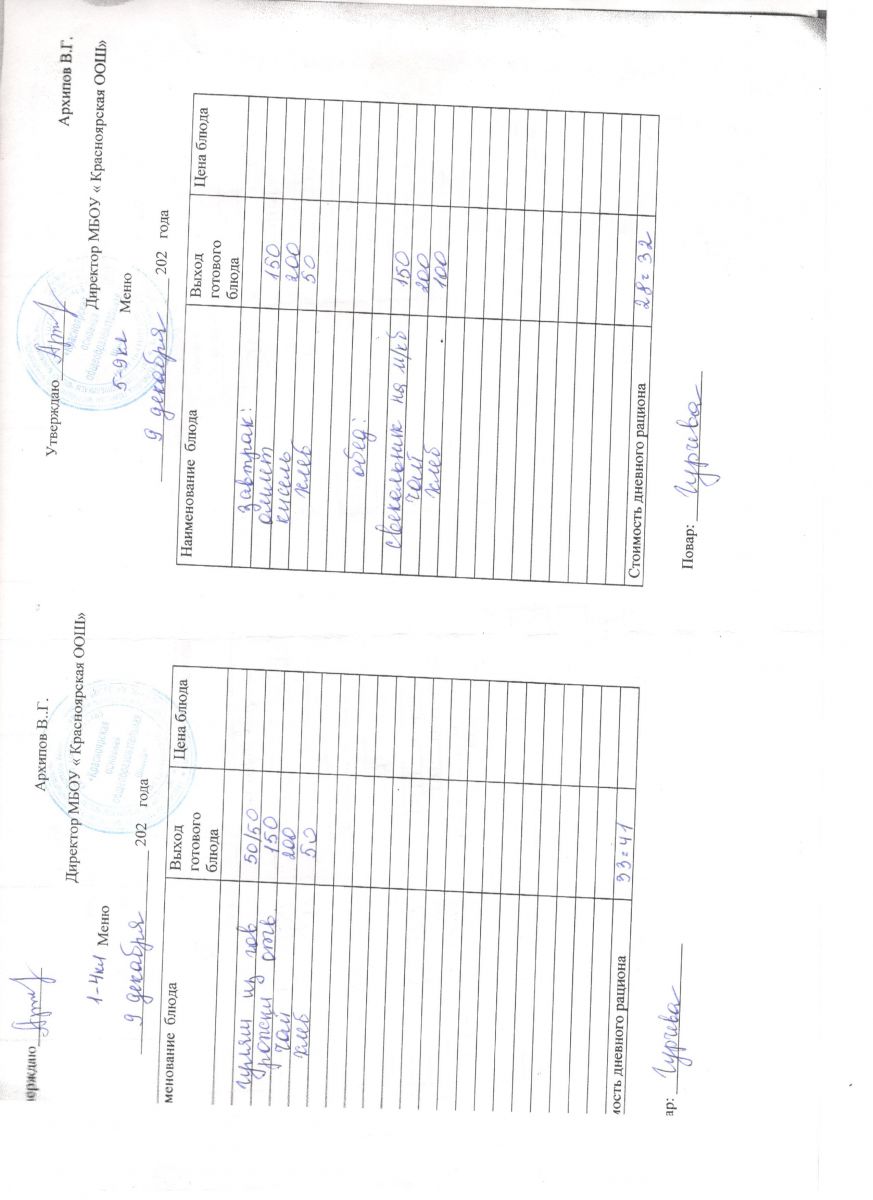 ерждаю
Архипов В..Г.
Директор МБОУ « Красноярская ООШ»
1-4кл Меню
9 декабря 202 года
менование блюда
Выход
готового
блюда
Цена блюда
гуляш из гов 50/50
рожки отв. 150
чай 200
хлеб 50
мость дневного рациона 93=41
ар:
Утверждаю
Архипов В.Г.
Директор МБОУ « Красноярская ООШ»
5-9кл Меню
9 декабря 202 года
Наименование блюда
Выход
готового
блюда
Цена блюда
завтрак:
омлет 150
кисель 200
хлеб 50
обед:
свекольник на м/кб 150
чай 200
хлеб 100
Стоимость дневного рациона 28=32
Повар: